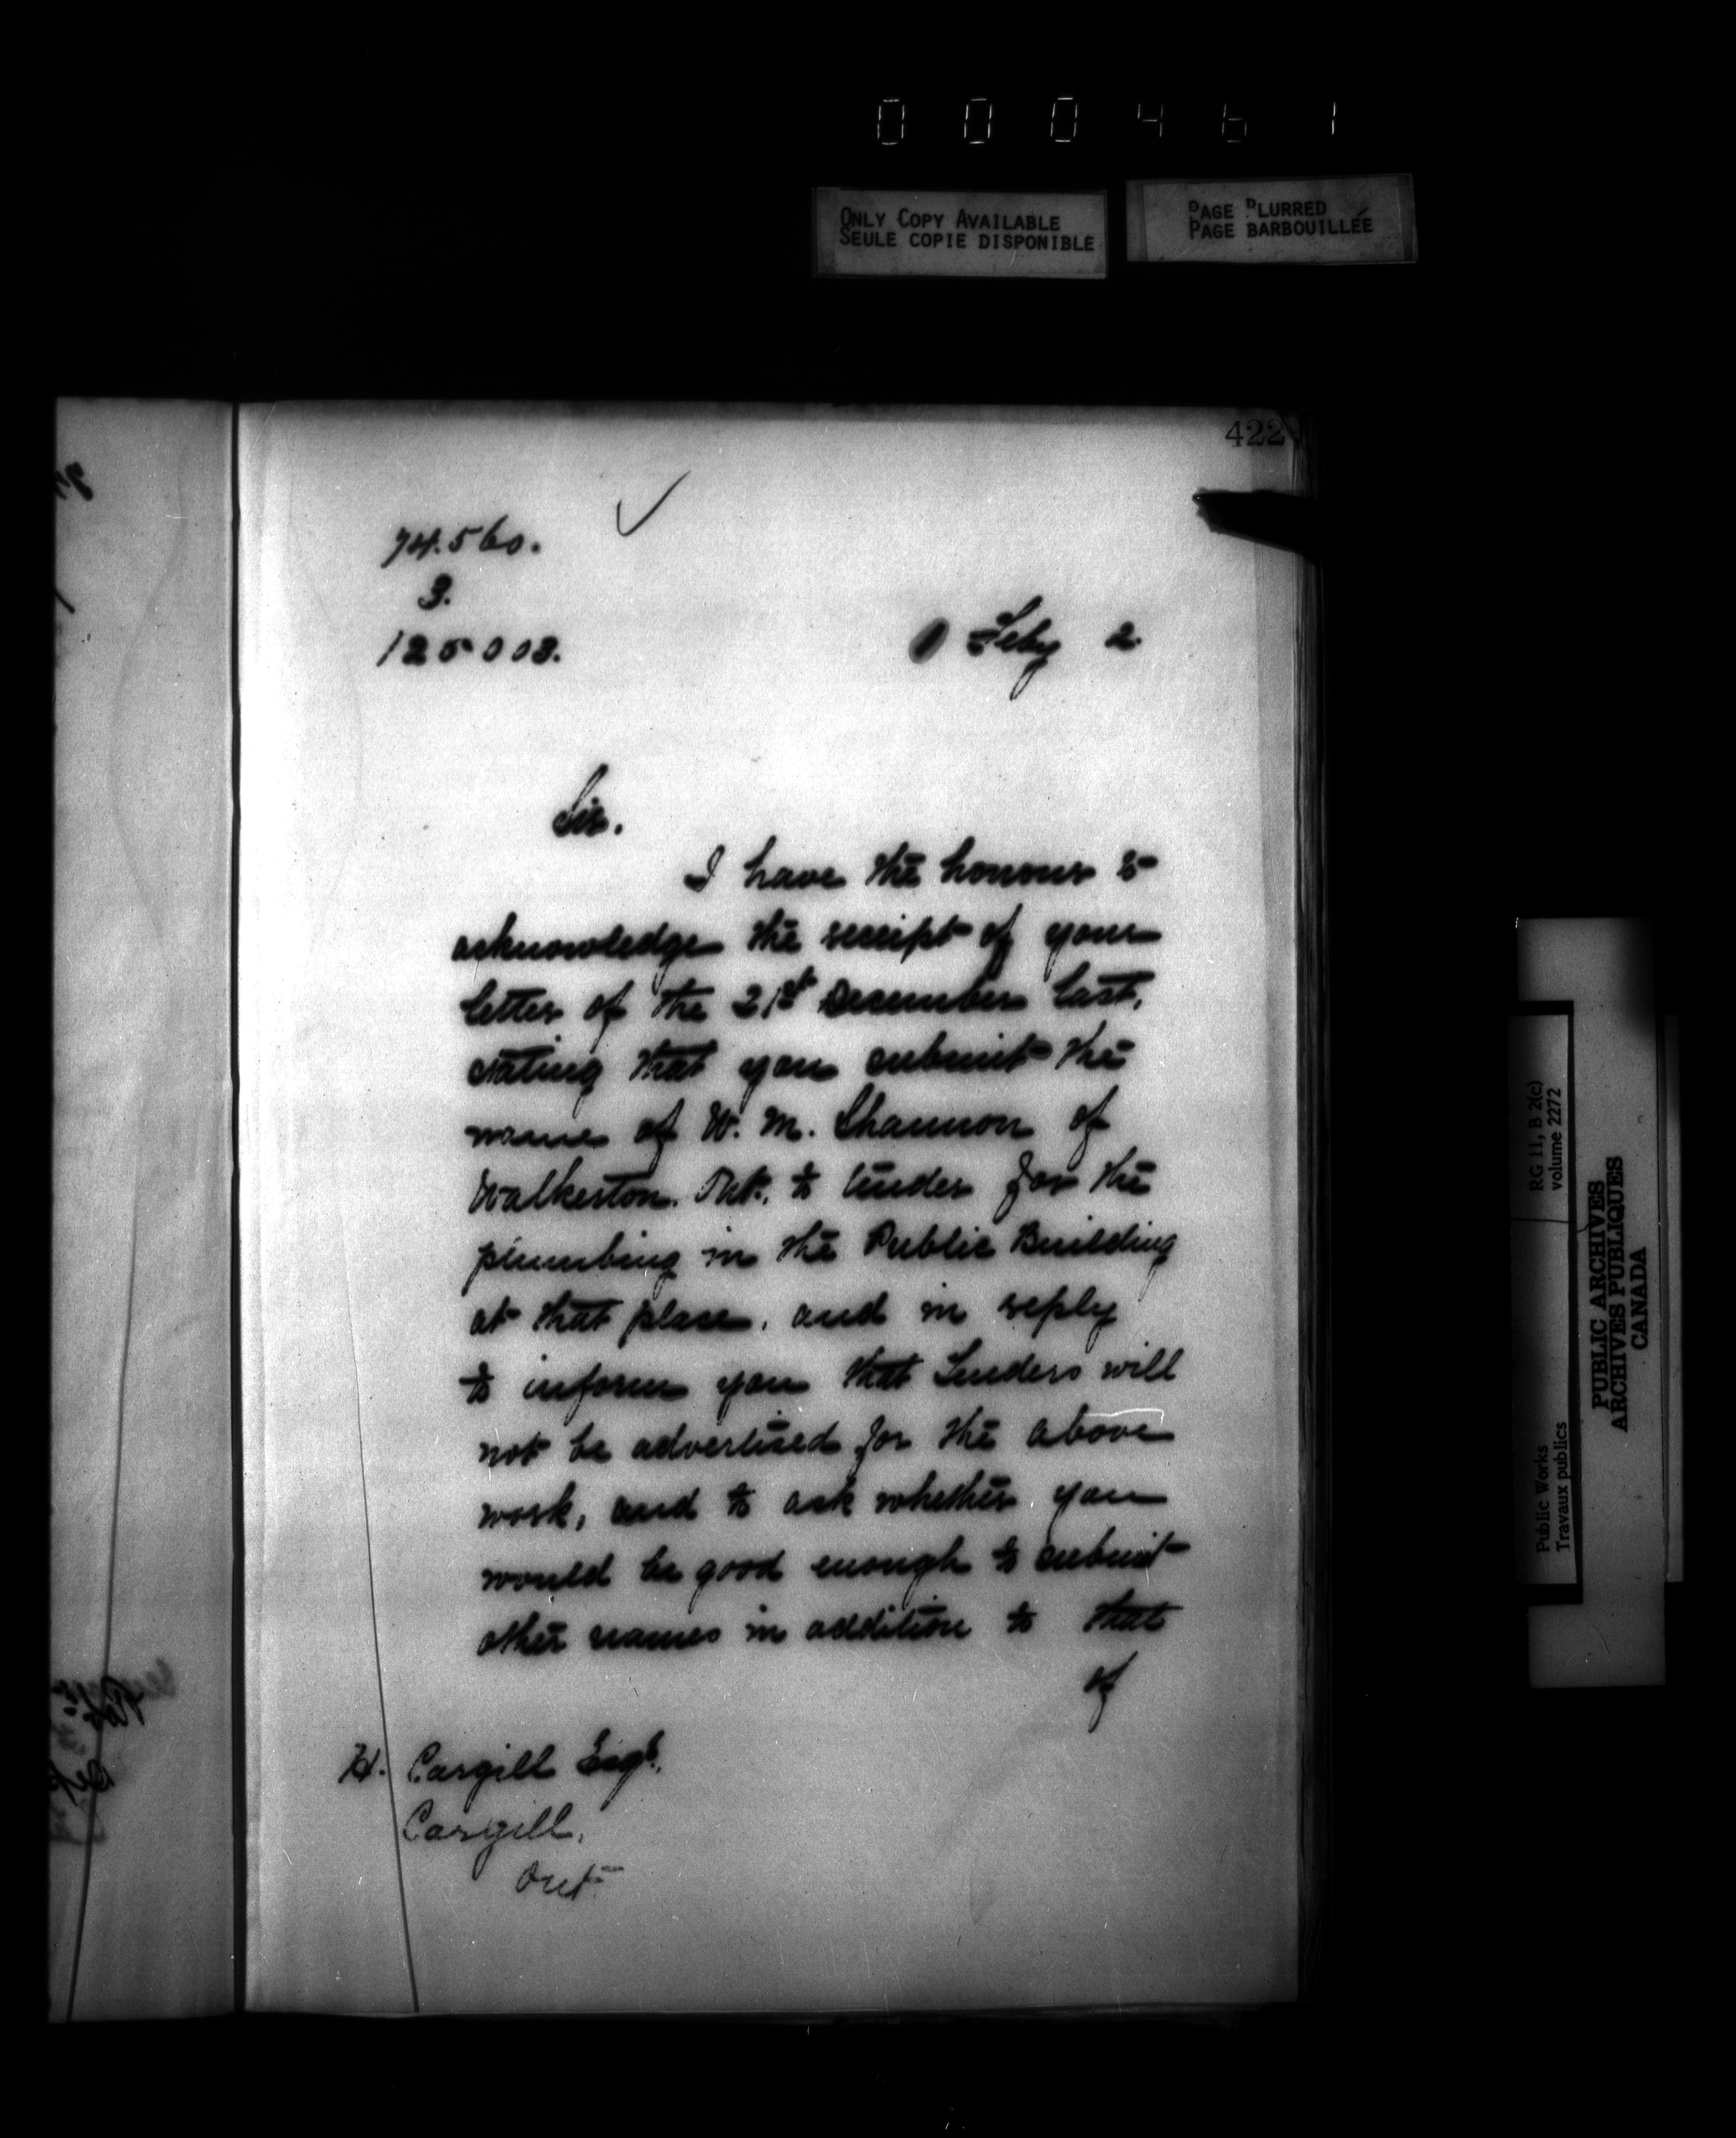 000461
ONLY COPY AVAILABLE
SEULE COPIE DISPONIBLE
PAGE BLURRED
PAGE BARBOUILLÉE
422
74.560.
3.
125003.
Feby 2.
Sir.
I have the honour to
acknowledge the receipt of your
letter of the 21st December last,
stating that you submit the
name of W. M. Shannon of
Walkerton. Ont. to tender for the
plumbing in the Public Building
at that place, and in reply
to inform you that Tenders will
not be advertised for the above
work, and to ask whether you
would be good enough to submit
other names in addition to that
of
H. Cargill Esqr.
Cargill,
Ont.
RG 11, B 2(c)
volume 2272
Public Works
Travaux publics
PUBLIC ARCHIVES
ARCHIVES PUBLIQUES
CANADA